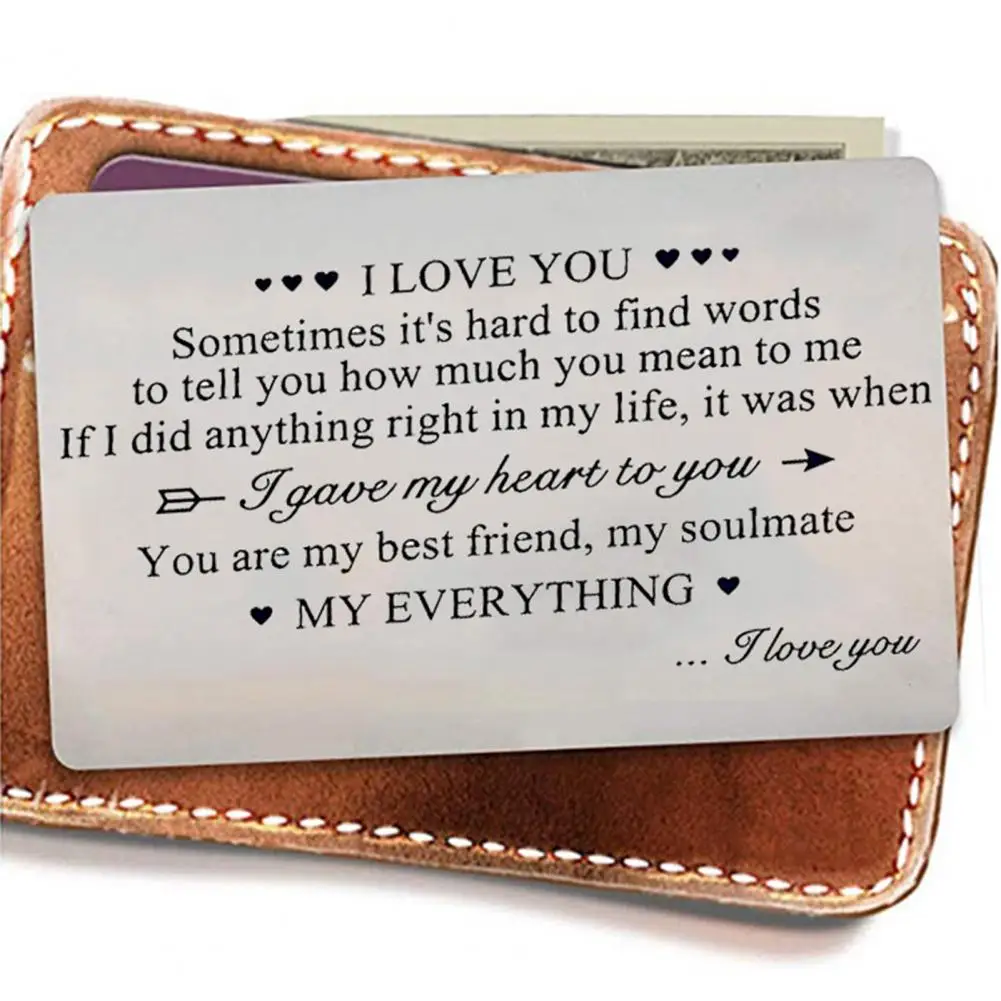 ♥♥♥ I LOVE YOU ♥♥♥
Sometimes it's hard to find words
to tell you how much you mean to me
If I did anything right in my life, it was when
I gave my heart to you
You are my best friend, my soulmate
♥ MY EVERYTHING ♥
... I love you